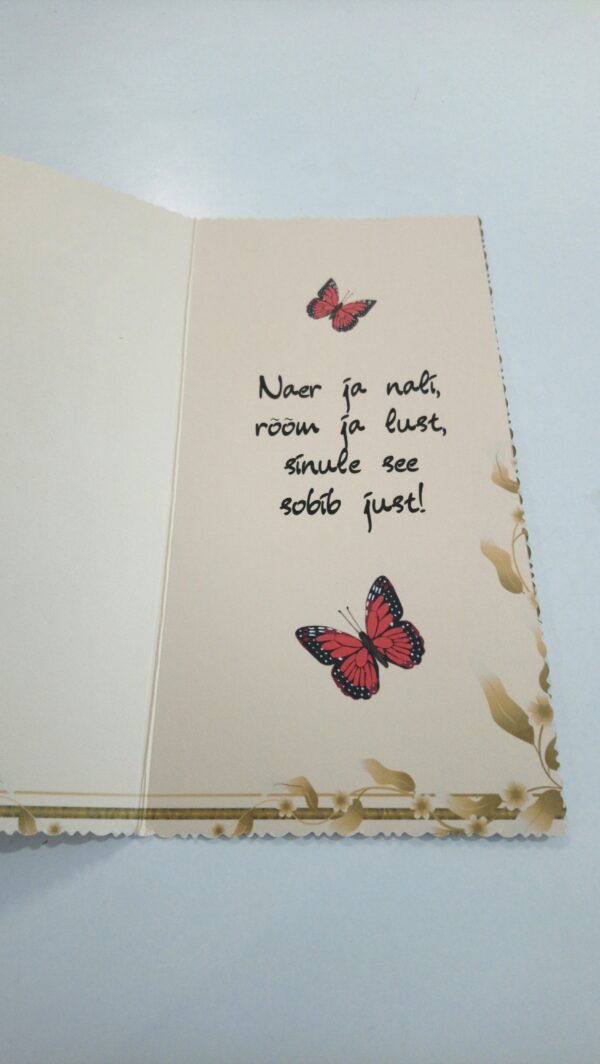 Naer ja nali,
rõõm ja lust,
sinule see
sobib just!